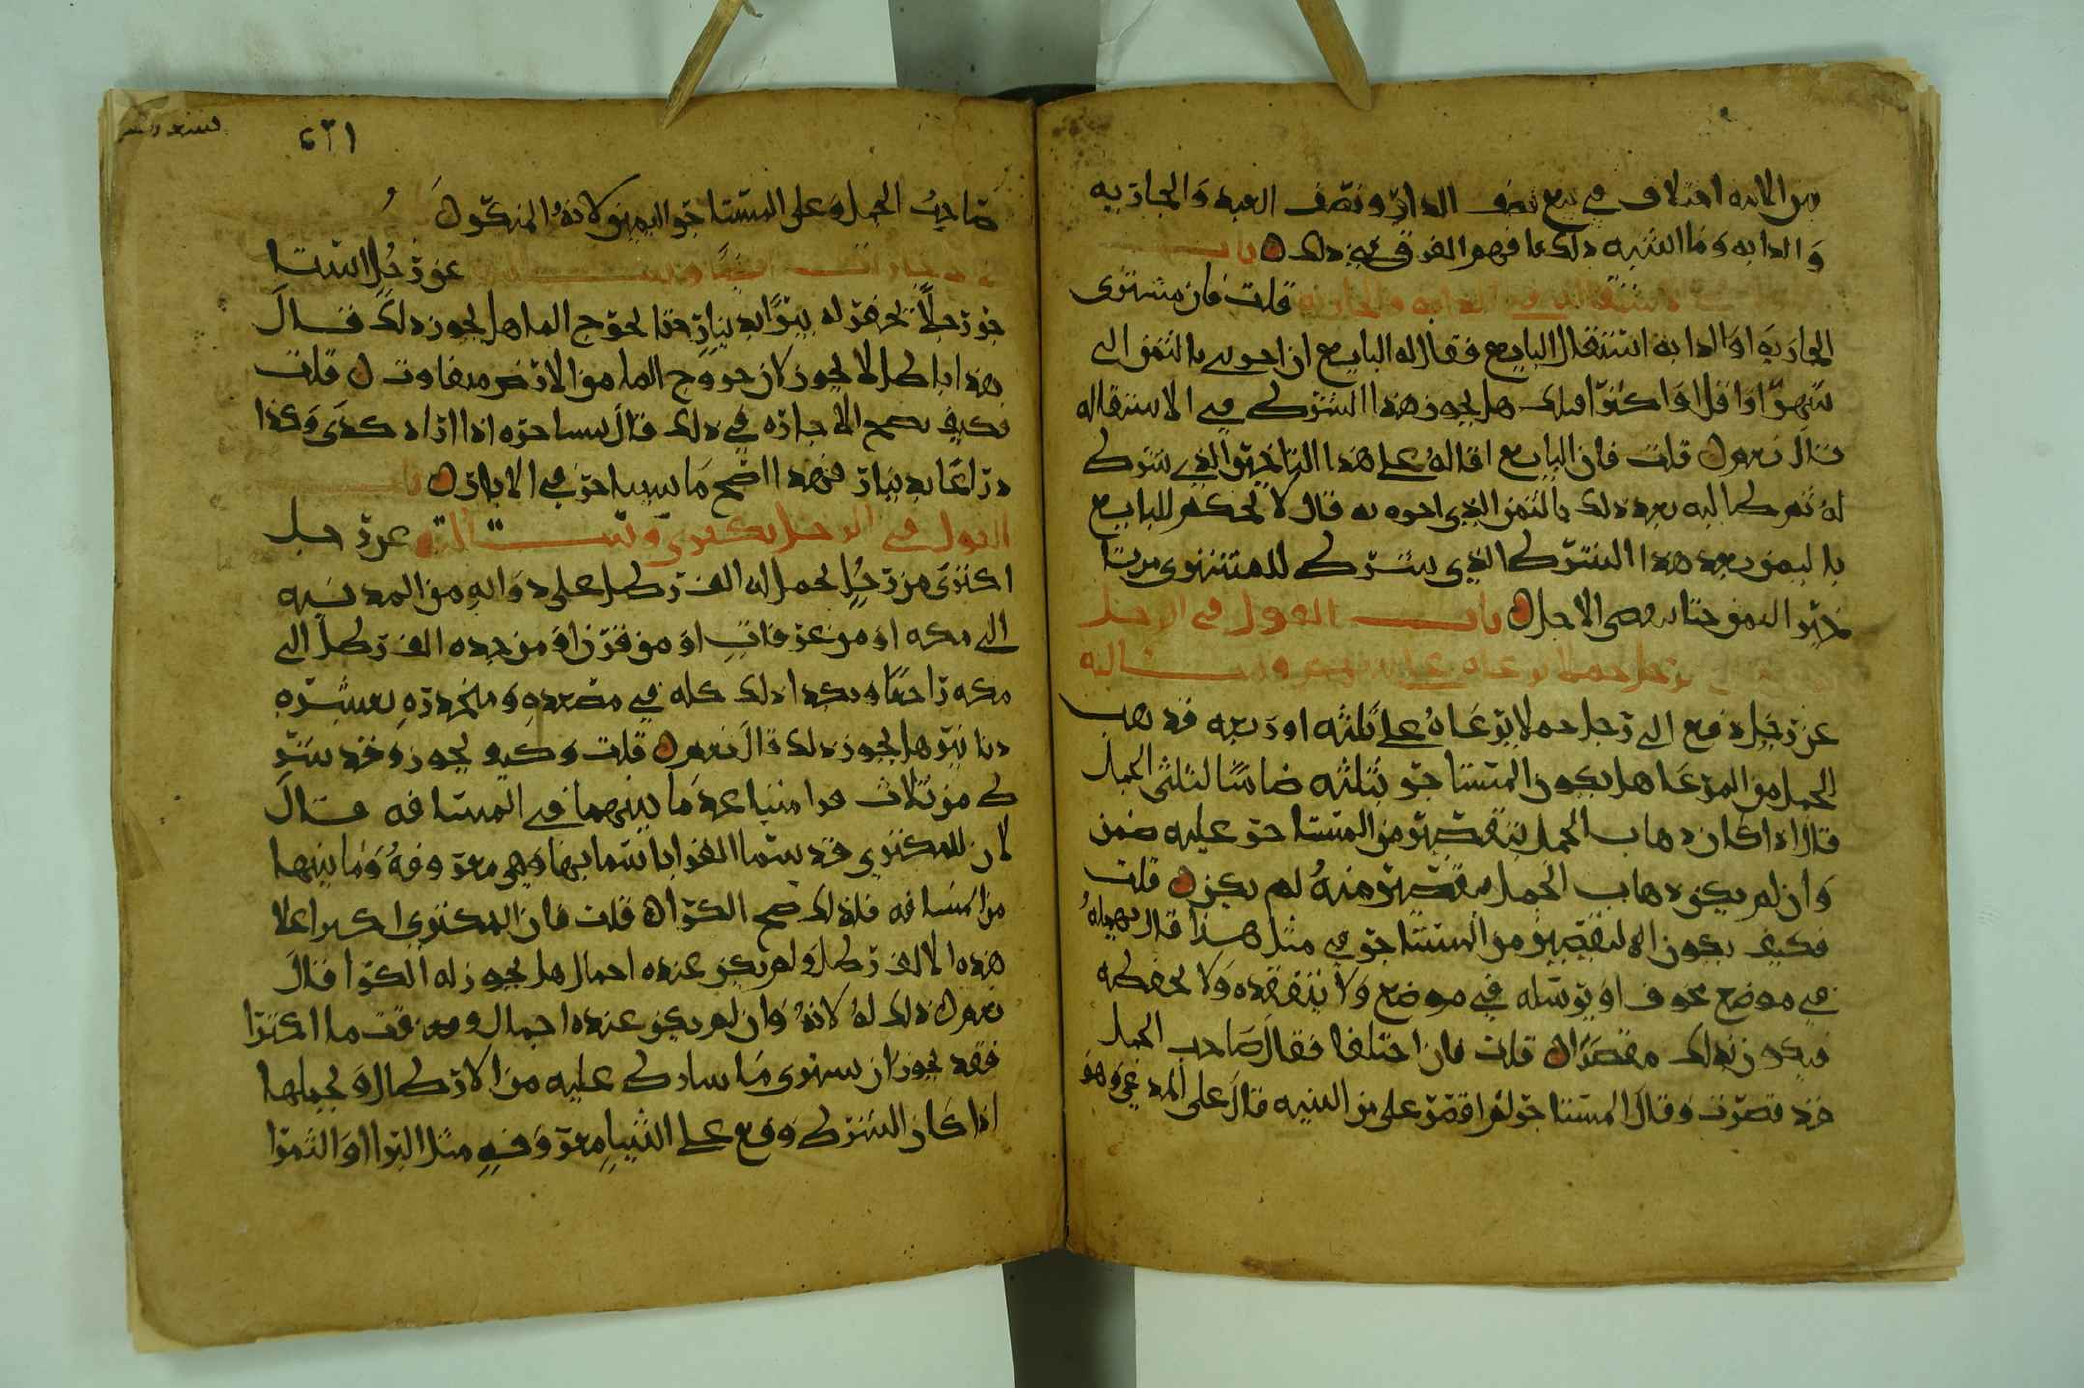 من الامه اختلاف في بيع نصف الدار ونصف العبد والجاريه
والدابه وما اشبه ذلك فافهم الفرق بين ذلك باب
في الدابه والجاريه قلت فان مشتري
الجاريه او الدابه استقال البايع فقال له البايع ان اخرني بالثمن الي
شهر او اقل او اكثر اقلتك هل يجوز هذا الشرط في الاستقاله
قال نعم قلت فان البايع اقاله على هذا التاخير الذي شرط
له ثم طالبه بعد ذلك بالثمن الذي اخره به قال لا يحكم للبايع
بالثمن بعد هذا الشرط الذي شرط للمشتري من تا
خير الثمن حتا يمضي الاجل باب القول في الرجل
الي رجل حملا يرعاه
عن رجل دفع الى رجل حملا يرعاه على ثلثه او ربعه فذهب
الحمل من المرعا هل يكون المستاجر بثلثه ضامنا لثلثي الحمل
قال اذا كان ذهاب الحمل بتقصير من المستاجر عليه ضمن
وان لم يكن ذهاب الحمل بتقصير منه لم يكن قلت
فكيف يكون التقصير من المستاجر في مثل هذا قال يهمله
في موضع مخوف او يرسله في موضع ولا يتفقده ولا يحفظه
فيكون بذلك مقصرا قلت فان اختلفا فقال صاحب الحمل
قد قصرت وقال المستاجر لم اقصر على من البينه قال على المدعي وهو
٦٣١
صاحب الحمل وعلى المستاجر اليمين لانه المنكر
عن رجل استا
جر رجلا يحفر له بيرا بدينار حتا يخرج الما هل يجوز ذلك قال
هذا باطل لا يجوز لان خروج الما من الارض متفاوت قلت
فكيف تصح الاجاره في ذلك قال يستاجره اذا اراد كذى وكذا
ذراعا بدينار فهذا اصح ما يستاجر في الابار باب
القول في الرجل يكتري عن رجل
اكترى من رجل يحمل له الف رطل على دوابه من المدينه
الى مكه او من عرفات او من قرن او من جده الف رطل الى
مكه ذلك كله في مصعده ومنحدره بعشره
دنانير هل يجوز ذلك قال نعم قلت وكيف يجوز وقد شر
ط من ثلاث قرا متباعد ما بينهما في المسافه قال
لان المكتري قد سما القرا باسمايها وهي معروفه وما بينها
من المسافه فلذلك صح الكرا قلت فان المكتري اكترا على
هذه الالف رطل ولم يكن عنده احمال هل يجوز له الكرا قال
نعم ذلك له لانه وان لم يكن عنده احمال وقت ما اكترا
فقد يجوز ان يشتري ما شارط عليه من الارطال ويحملها
اذا كان الشرط وقع على اشيا معروفه مثل البر او التمر